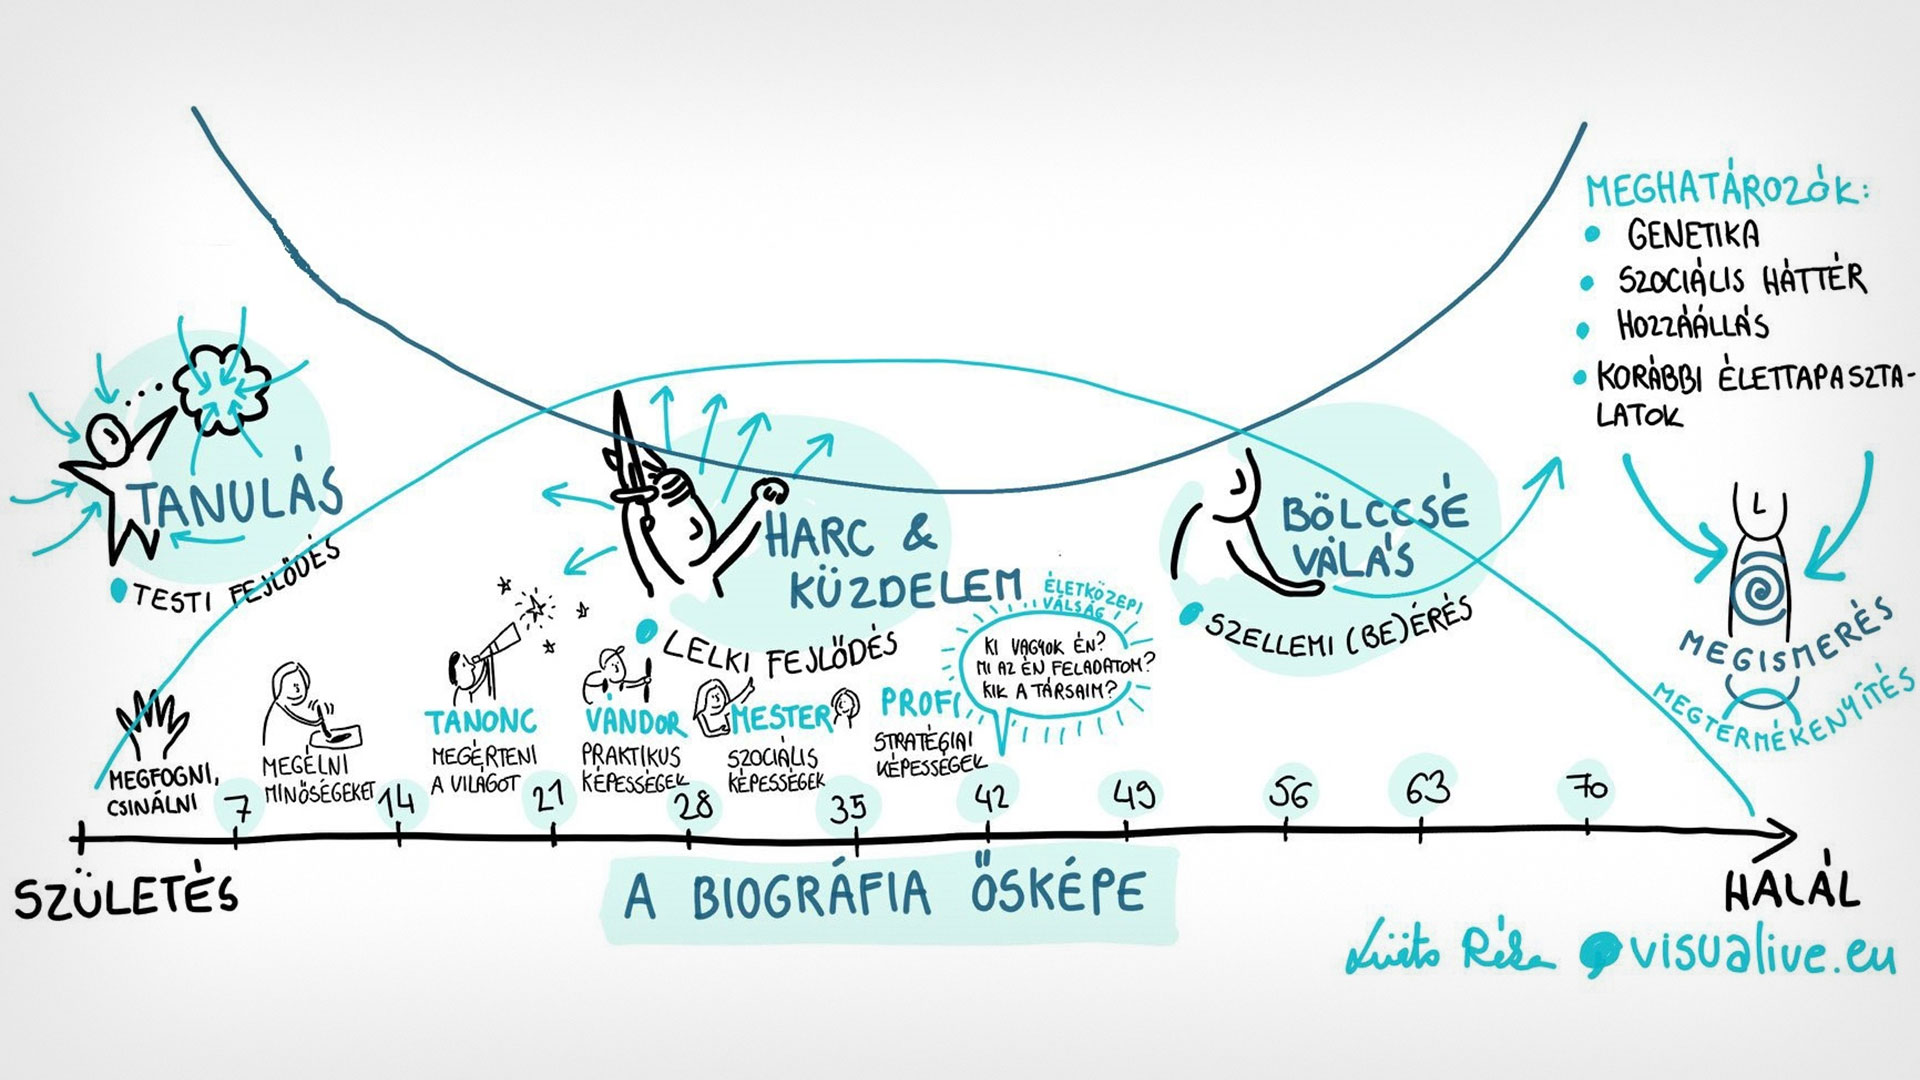 MEGHATÁROZÓK:
GENETIKA
SZOCIÁLIS HÁTTÉR
HOZZÁÁLLÁS
KORÁBBI ÉLETTAPASZTA-
LATOK
TANULÁS
TESTI FEJLŐDÉS
HARC &
KÜZDELEM
LELKI FEJLŐDÉS
BÖLCCSÉ
VÁLÁS
SZELLEMI (BE)ÉRÉS
MEGISMERÉS
MEGTERMÉKENYÍTÉS
ÉLETKÖZEPI
VÁLSÁG
KI VAGYOK ÉN?
MI AZ ÉN FELADATOM?
KIK A TÁRSAIM?
MEGFOGNI,
CSINÁLNI
MEGÉLNI
MINŐSÉGEKET
TANONC
MEGÉRTENI
A VILÁGOT
VÁNDOR
PRAKTIKUS
KÉPESSÉGEK
MESTER
SZOCIÁLIS
KÉPESSÉGEK
PROFI
STRATÉGIAI
KÉPESSÉGEK
7 14 21 28 35 42 49 56 63 70
SZÜLETÉS
HALÁL
A BIOGRÁFIA ŐSKÉPE
Réka visualive.eu